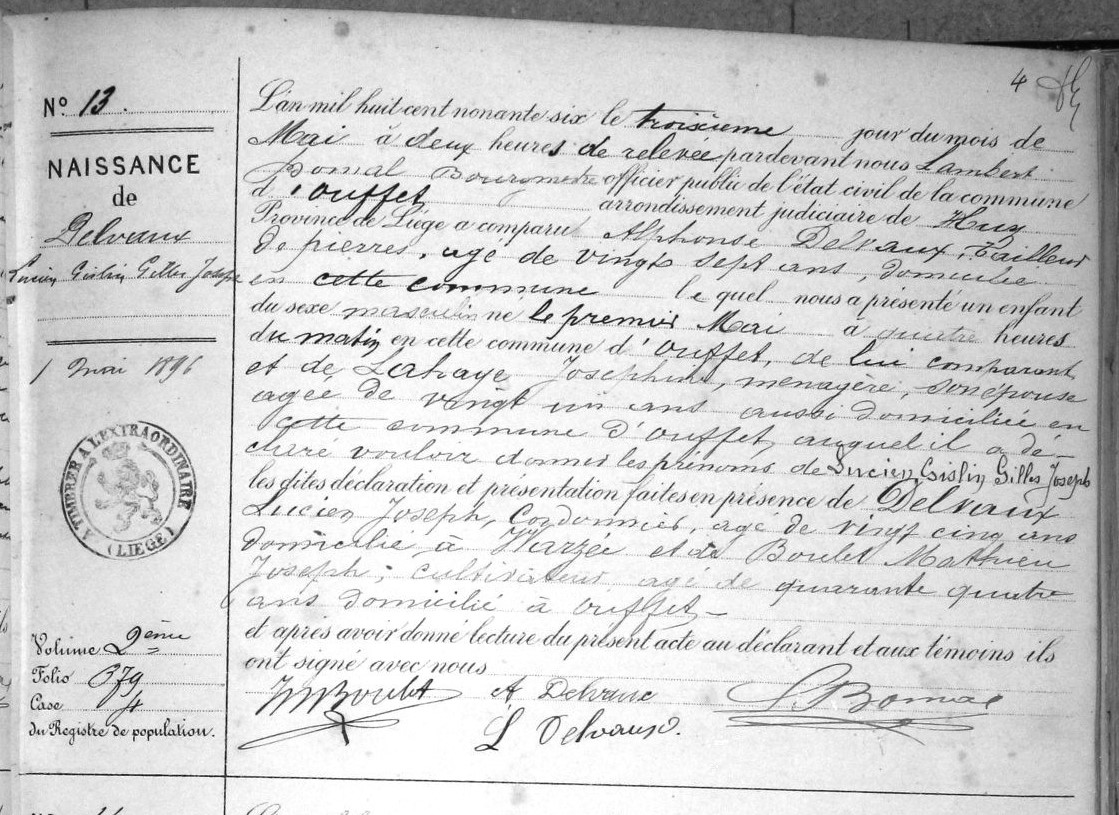 4
Nº 13.
NAISSANCE
de
Delvaux
Lucien Gislin Gilles Joseph
1 mai 1896
A TIMBRER A L'EXTRAORDINAIRE
(LIEGE)
Volume 2ème
Folio 379
Case 4
du Registre de population.
L'an mil huit cent nonante six le troisième jour du mois de
Mai à deux heures de relevée pardevant nous Lambert
Bomal Bourgmestre officier public de l'état civil de la commune
d'Ouffet arrondissement judiciaire de Huy
Province de Liége a comparu Alphonse Delvaux, Tailleur
de pierres, agé de vingt sept ans, domicilié
en cette commune lequel nous a présenté un enfant
du sexe masculin né le premier Mai à quatre heures
du matin en cette commune d'Ouffet, de lui comparant
et de Lahaye Joséphine, ménagère, son épouse
agée de vingt un ans aussi domiciliée en
cette commune d'Ouffet, auquel il a dé-
claré vouloir donner les prénoms de Lucien Gislin Gilles Joseph
les dites déclaration et présentation faites en présence de Delvaux
Lucien Joseph, Cordonnier, agé de vingt cinq ans
domicilié à Warzée et de Boulet Mathieu
Joseph, cultivateur agé de quarante quatre
ans domicilié à Ouffet -
et après avoir donné lecture du présent acte au déclarant et aux témoins ils
ont signé avec nous
MJBoulet A Delvaux L. Bomal
L Delvaux.